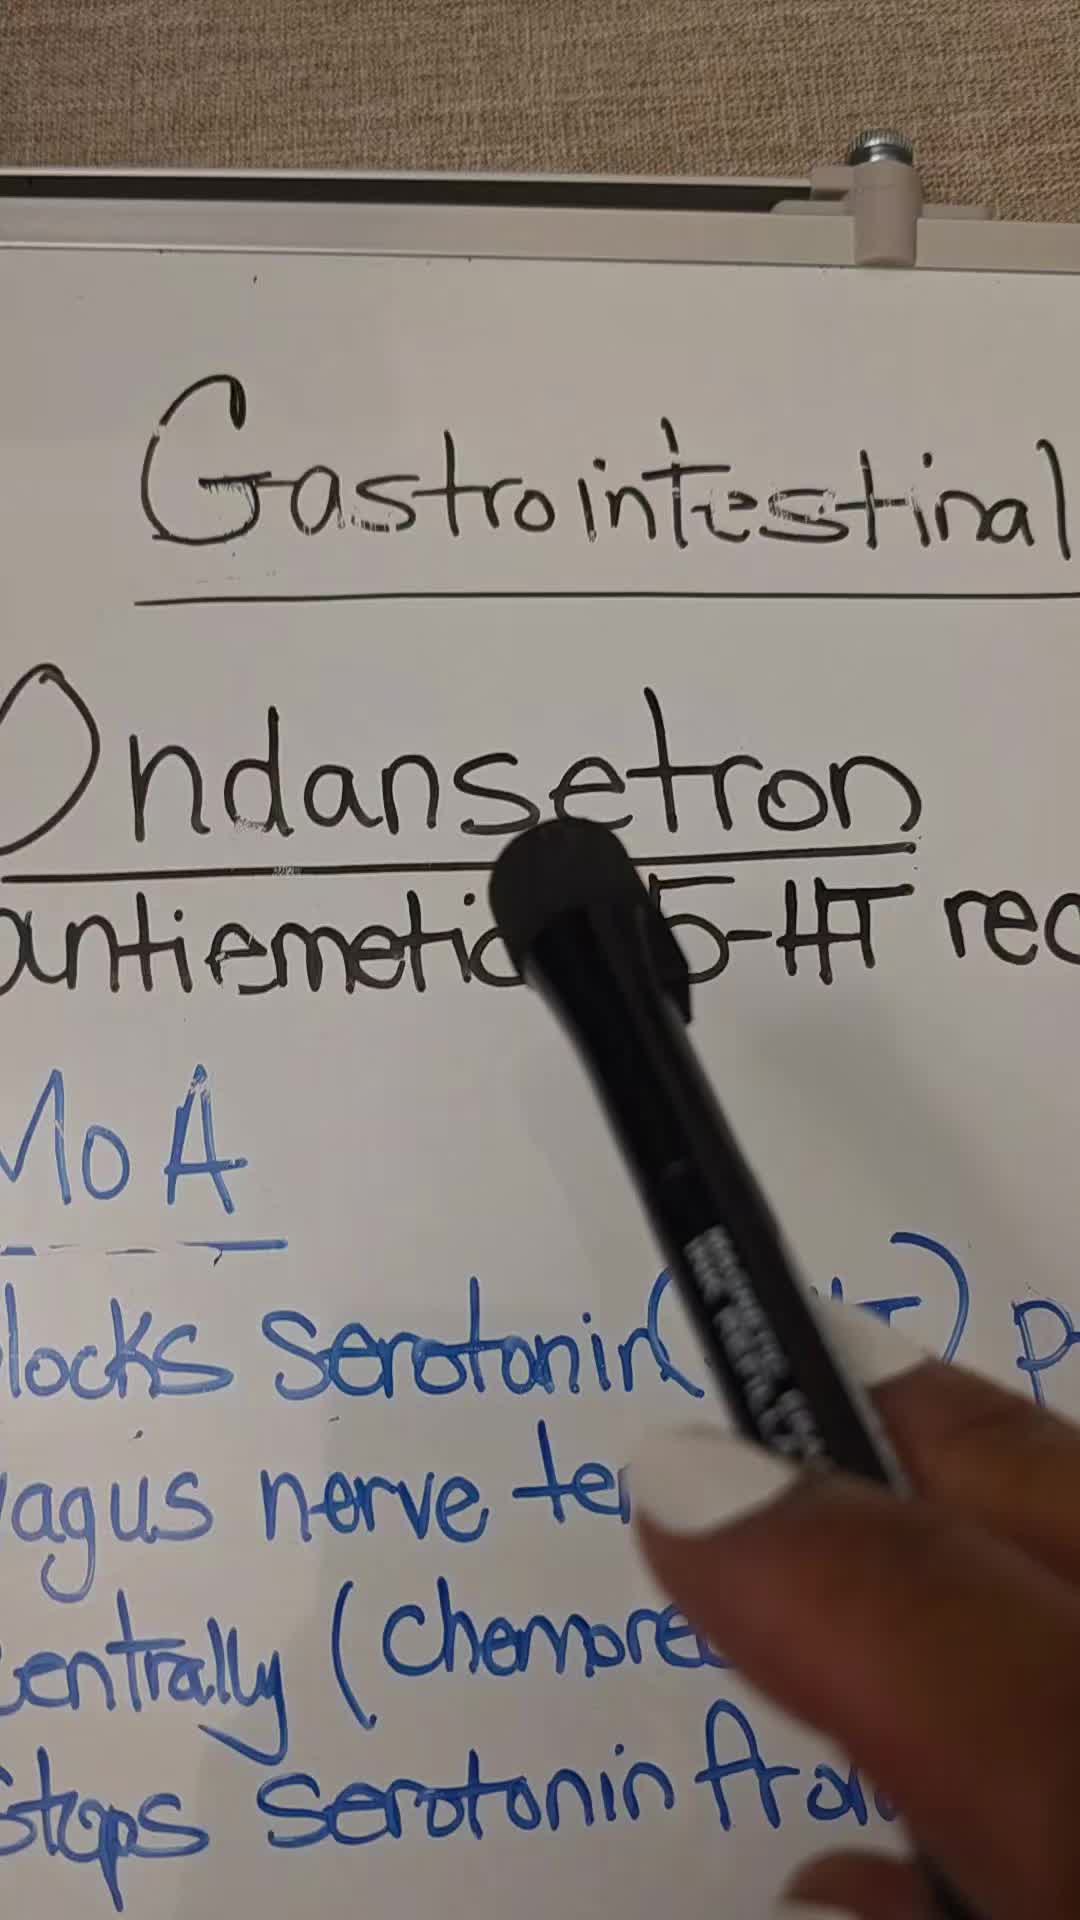 Gastrointestinal
Ondansetron
antiemetic 5-HT rec
MoA
locks serotonin (
agus nerve te
entrally (chemorec
stops serotonin from